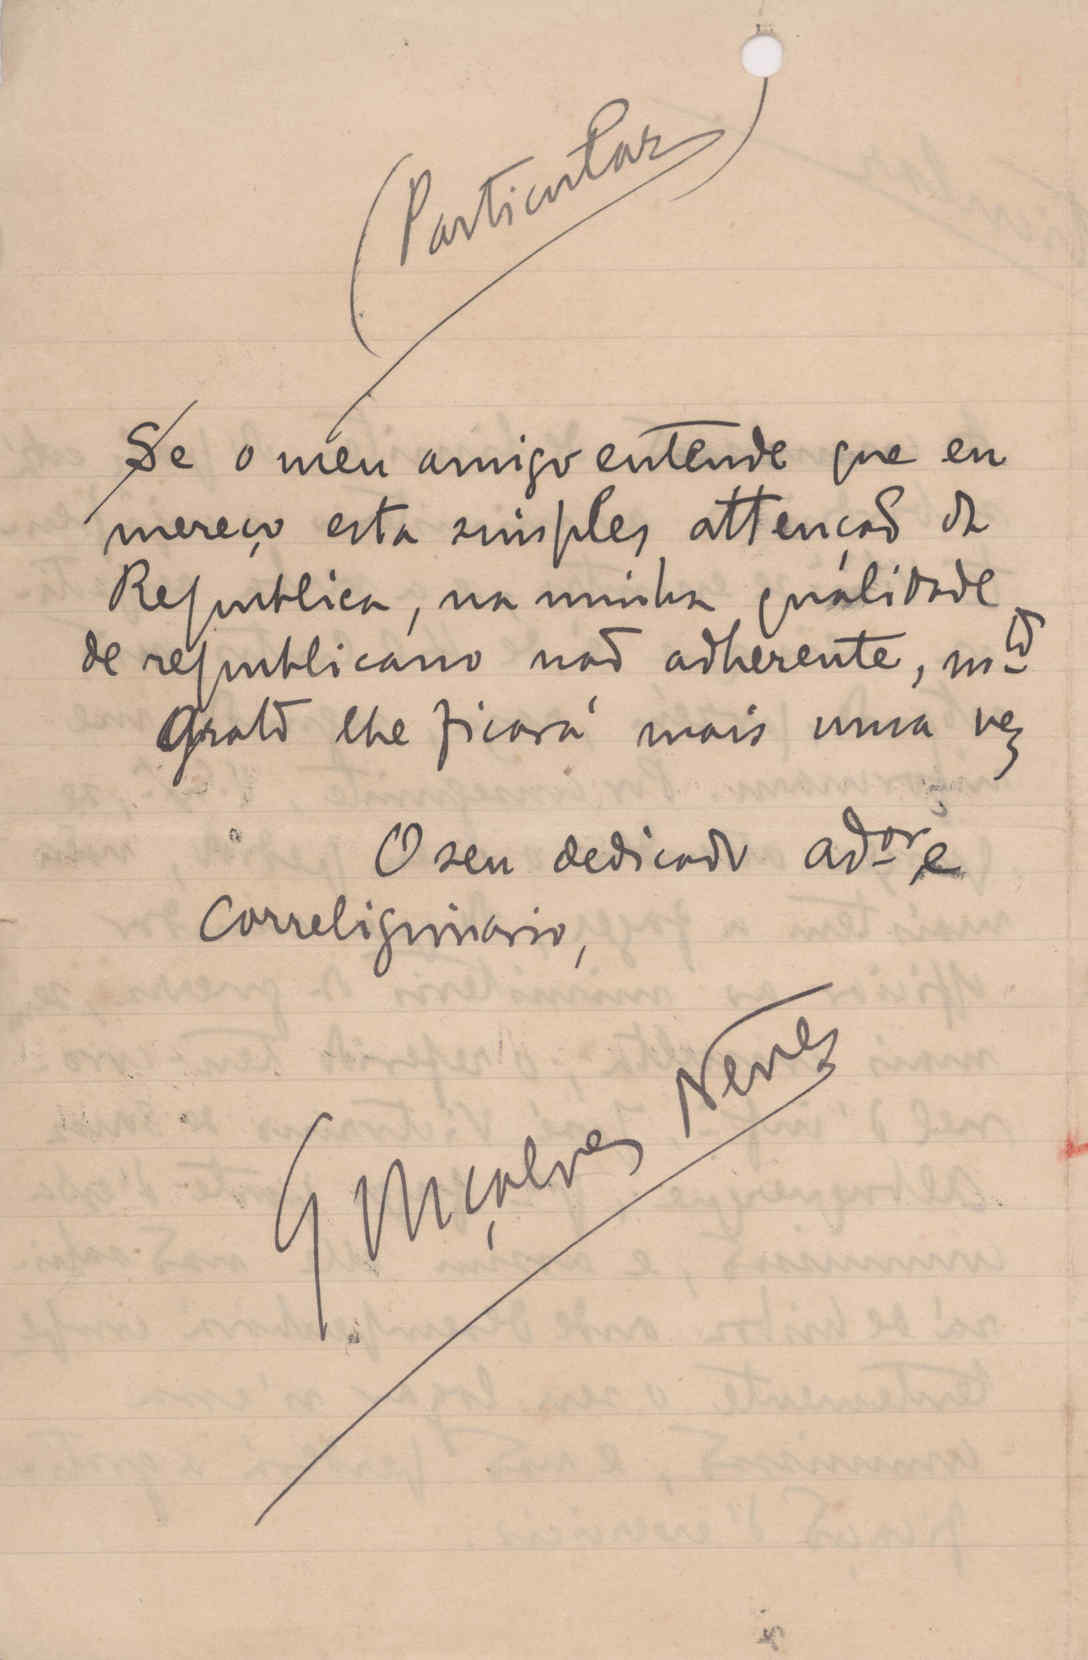 (Particular)
Se o meu amigo entende que eu
mereço esta simples attenção da
Republica, na minha qualidade
de republicano não adherente, mtº
Grato lhe ficará mais uma vez
O seu dedicado ador e
Correligionario,
Gonçalves Neves